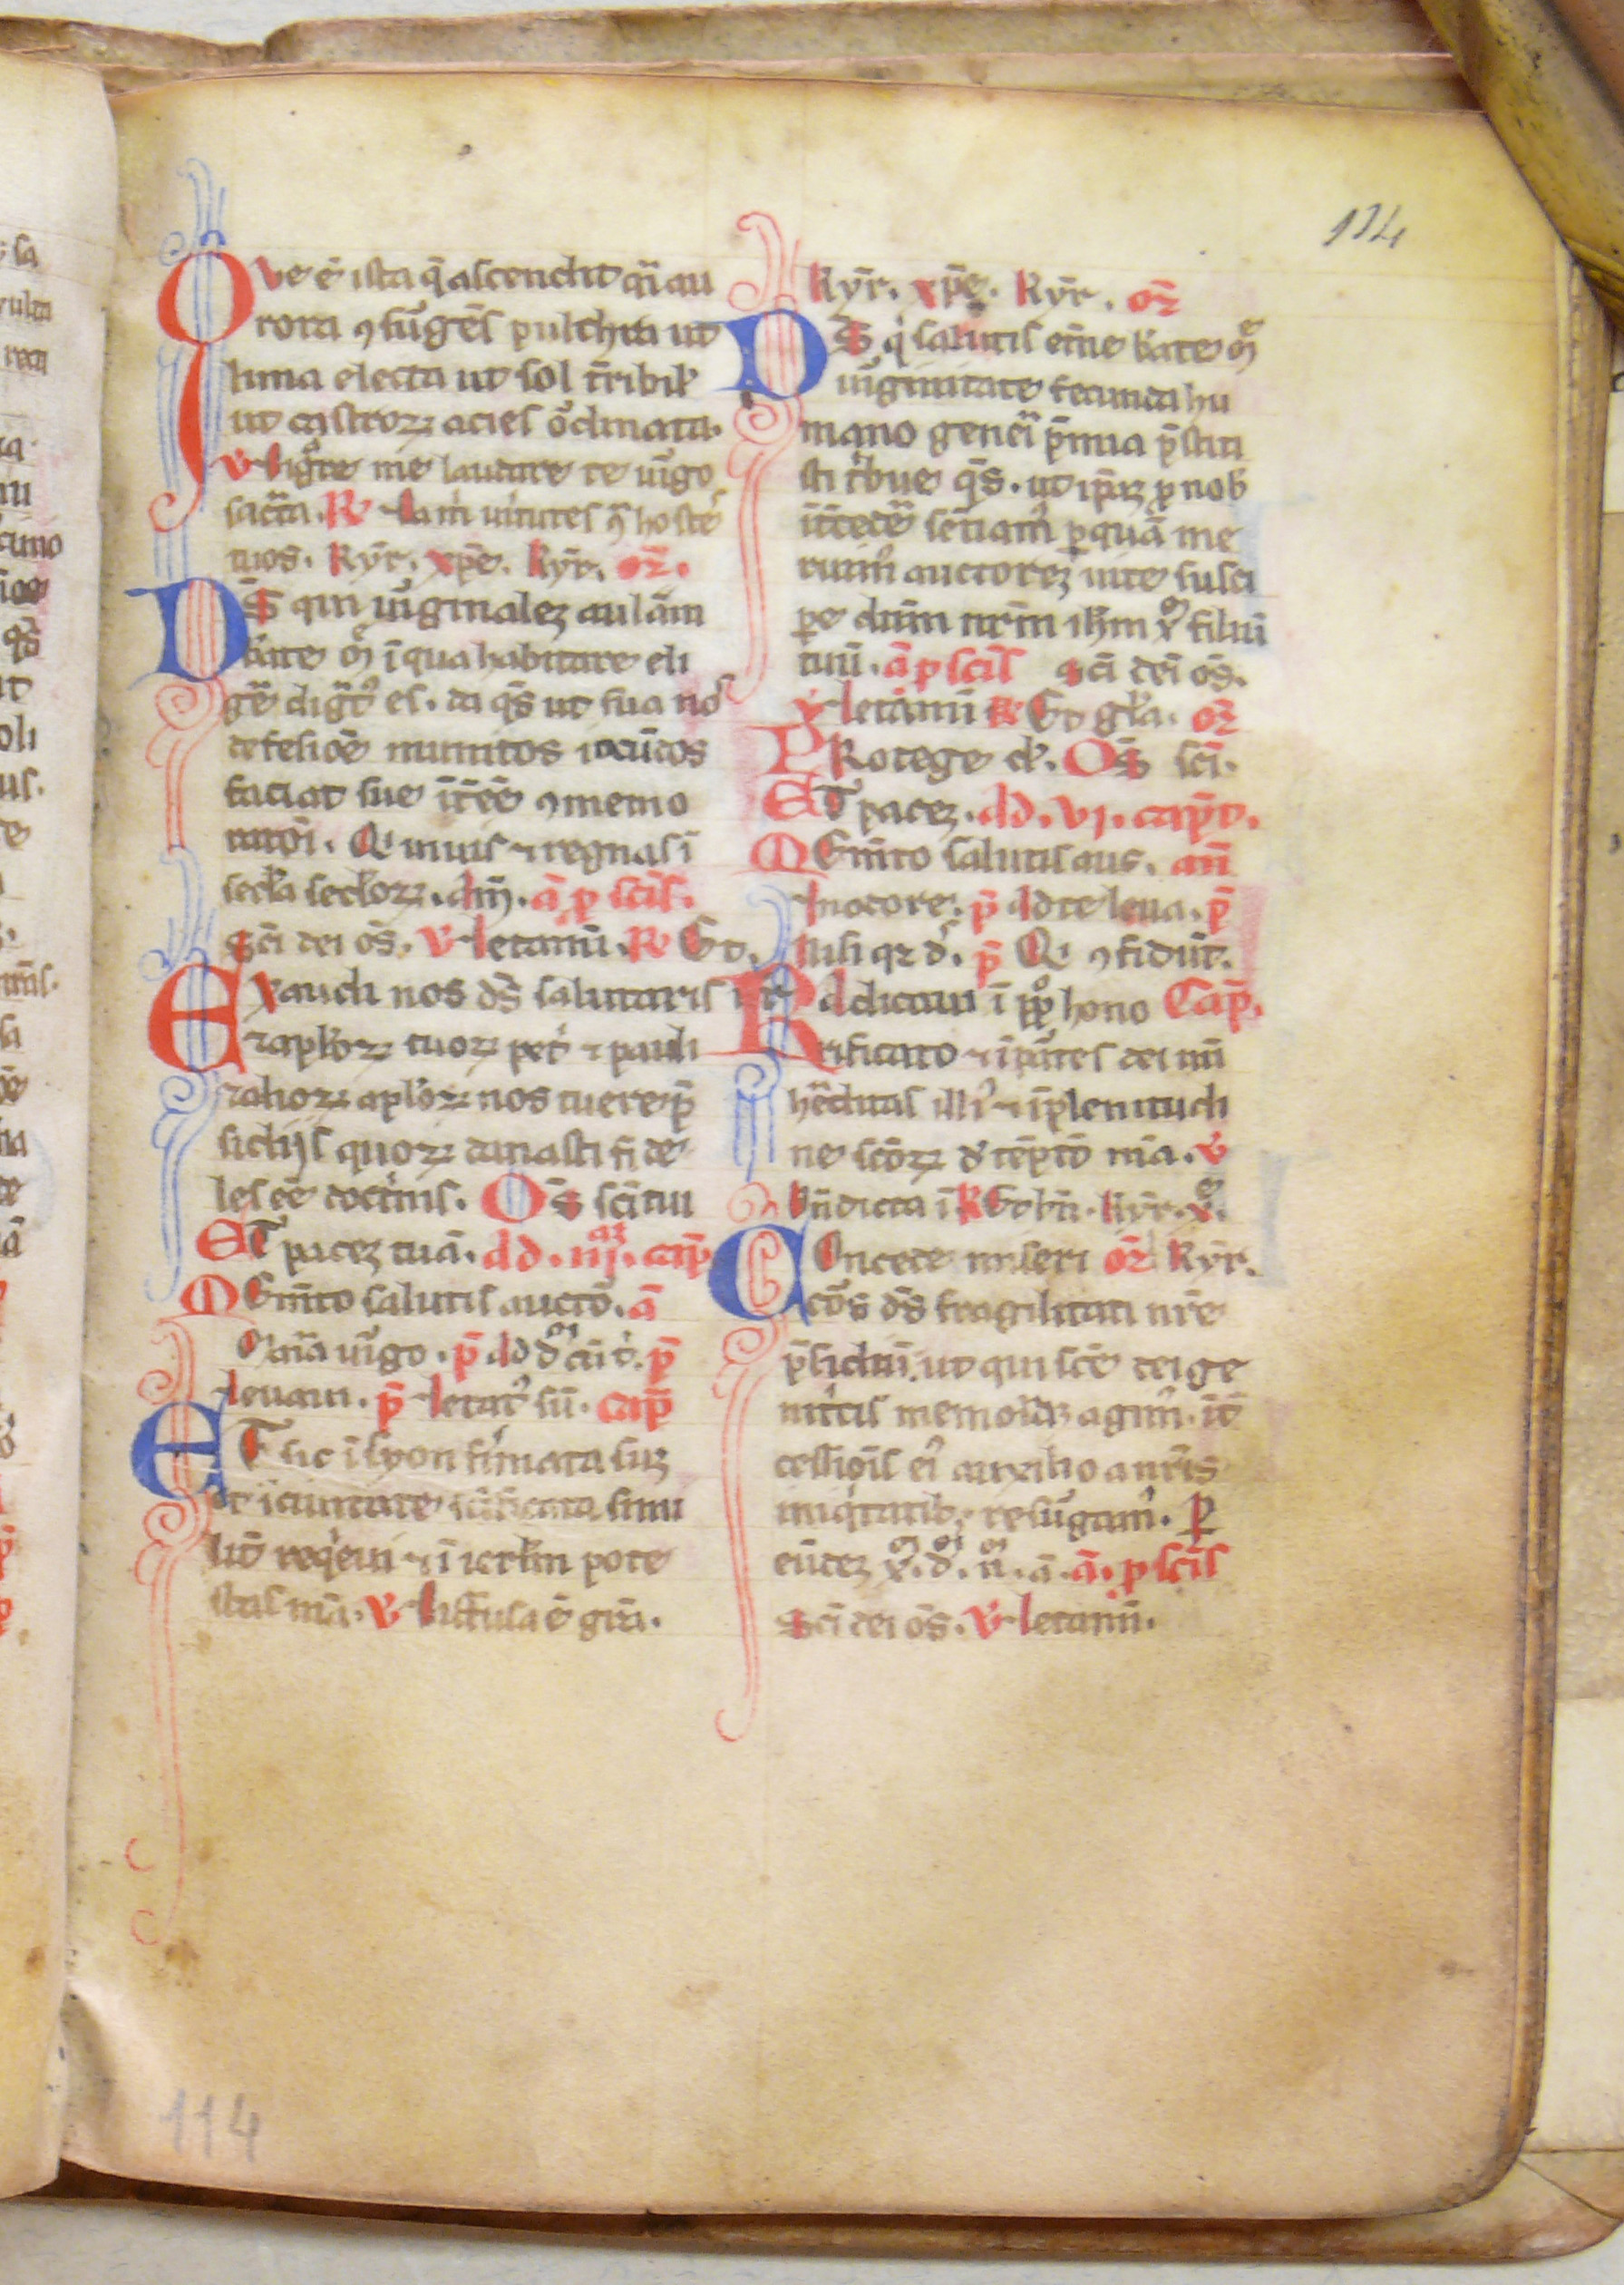 114
Que ē ista q̄ ascendit q̄ȧi au
rora ɔsurgēs pulchra ut
luna electa ut sol t̄ribil'
ut castroꝝ acies ordinata.
℣ Dignare me laudare te uirgo
sacrata. ℟ Da m̄ uirtutes ɔ̄ hostes
tuos. kyr̄. xp̄e. kyr̄. or̄.
Ds̄ qui uirginalem aulam
b̄ate M̄ ī qua habitare eli
gere dignatus es. da q̄s ut sua nos
defensiōe munitos iocūdos
faciat sue īt̄ēē ɔmemo
ratōi. Qi uiuis ⁊ regnas ī
secl'a secl'oꝝ. am̄. ā p sc̄is.
Sc̄i dei oēs. ℣ letamī. ℟ Et.
Exaudi nos ds̄ salutaris nr̄
⁊ apl'oꝝ tuoꝝ pet' ⁊ pauli
⁊ alioꝝ apl'oꝝ nos tuere p̄
sidiis quoꝝ donasti fide
les eē doctrinis. Oēs sc̄i tui
ET pacem tuā. ad. iij. cap̄.
MEmēto salutis auctor. ā
Maria uirgo. p̄ ad d'
leuaui. p̄ letat' sū. cap̄
ET sic ī syon firmata sum
et ī ciuitate sc̄ificata simi
lit' reqeui ⁊ ī ierl'm pote
stas m̄a. ℣ Diffusa ē gr̄a.
kyr̄. xp̄e. kyr̄. or̄
Ds̄ q̇ salutis et̄ne b̄ate M̄
uirginitate fecunda hu
mano generi p̄mia p̄stiti
sti t̄bue q̄s. ut ip̄am p nob
īt̄cedere sētiam' p quā me
ruim' auctorem uite susci
pe dn̄m nr̄m ih̄m x̄ filiū
tuū. ā p sc̄is Sc̄i dei oēs.
℣ letamini ℟ Et gl'a. or̄
PRotege d'. Oēs sc̄i.
ET pacem. ad. vi. cap̄t.
MEmēto salutis auc. an̄
In odore. p̄ ad te leua. p̄
Nisi qr d'. p̄ Qi ɔfidūt.
Radicaui ī pp̄lo hono Cap̄.
rificato ⁊ ī partes dei mei
hereditas illi' ⁊ ī plenitudi
ne sc̄oꝝ detēptō m̄a. ℣
Bn̄dicta ī. ℟ Et bn̄. kyr̄. x̄.
Concede miseri or̄ kyr̄.
cors ds̄ fragilitati nr̄e
p̄sidiū. ut qui sc̄e dei ge
nitricis memoriam agim'. īt̄
cessiōis ei' auxilio a nr̄is
iniqtatib; resurgam'. P
eūdem x̄. d. n̄. ā. ā. p sc̄is
Sc̄i dei oēs. ℣ letamī.
114